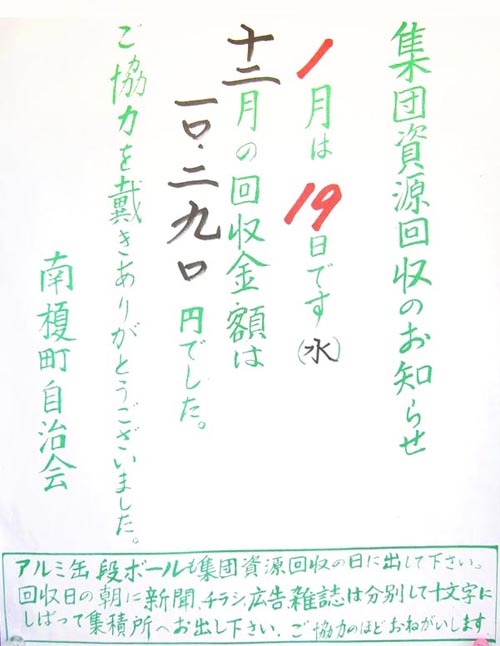 集団資源回収のお知らせ
1月は19日です(水)
十二月の回収金額は
一〇.二九〇円でした。
ご協力を戴きありがとうございました。
南榎町自治会
アルミ缶段ボールも集団資源回収の日に出して下さい。
回収日の朝に新聞、チラシ、広告、雑誌は分別して十文字に
しばって集積所へお出し下さい.ご協力のほどおねがいします